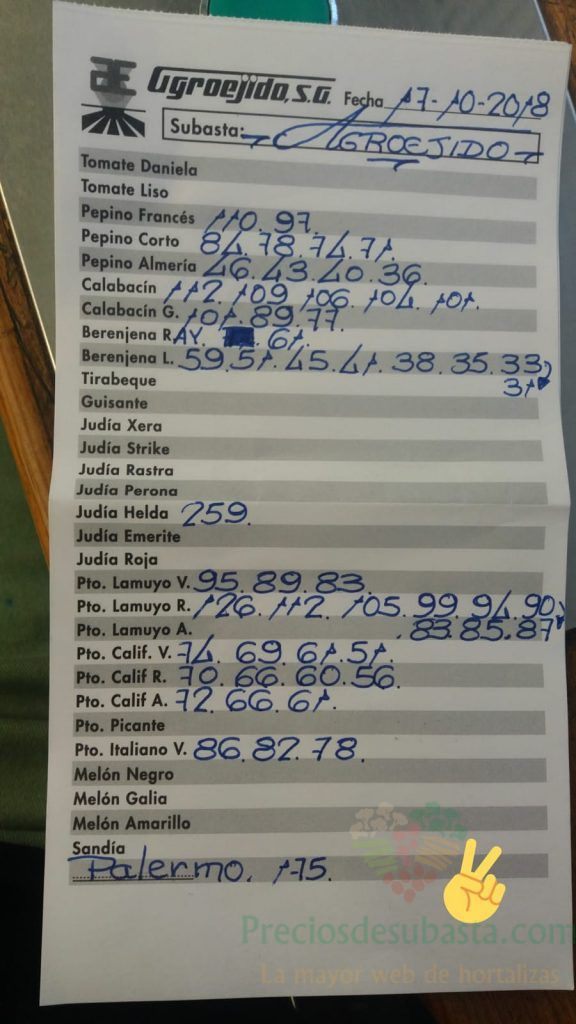 Agroejido, S.A. Fecha 17-10-2018
Subasta: AGROEJIDO
Tomate Daniela
Tomate Liso
Pepino Francés 110. 97.
Pepino Corto 84. 78. 74. 71.
Pepino Almería 46. 43. 40. 36.
Calabacín 112. 109 106. 104. 101.
Calabacín G. 101. 89. 77.
Berenjena RAY. 61.
Berenjena L. 59. 51. 45. 41. 38. 35. 33,
Tirabeque 31
Guisante
Judía Xera
Judía Strike
Judía Rastra
Judía Perona
Judía Helda 259.
Judía Emerite
Judía Roja
Pto. Lamuyo V. 95. 89. 83.
Pto. Lamuyo R. 126. 112. 105. 99. 94. 90
Pto. Lamuyo A. .83.85.87
Pto. Calif. V. 74. 69. 61. 51.
Pto. Calif R. 70. 66. 60. 56.
Pto. Calif A. 72. 66. 61.
Pto. Picante
Pto. Italiano V. 86. 82. 78.
Melón Negro
Melón Galia
Melón Amarillo
Sandía
Palermo. 175.
Preciosdesubasta.com
La mayor web de hortalizas